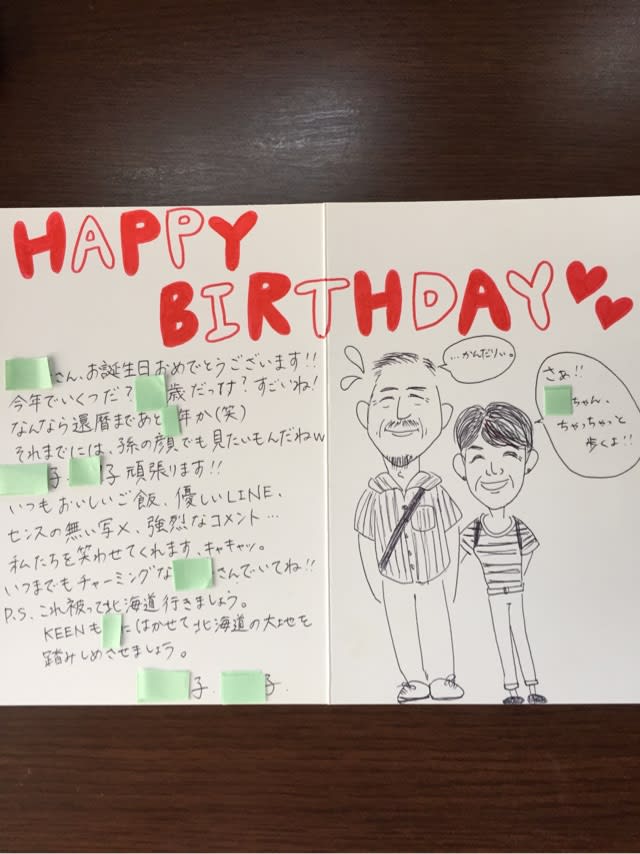 HAPPY
BIRTHDAY
さん、お誕生日おめでとうございます!!
今年でいくつだ? 歳だっけ?すごいね!
なんなら還暦まであと 年か(笑)
それまでには、孫の顔でも見たいもんだねw
子、 子 頑張ります!!
いつもおいしいご飯、優しいLINE、
センスの無い写メ、強烈なコメント…
私たちを笑わせてくれます、キャキャッ。
いつまでもチャーミングな さんでいてね!!
P.S. これ被って北海道行きましょう。
KEENも にはかせて北海道の大地を
踏みしめさせましょう。
子、 子.
…がんだりぃ。
さぁ!!
ちゃん、
ちゃっちゃっと
歩くよ!!